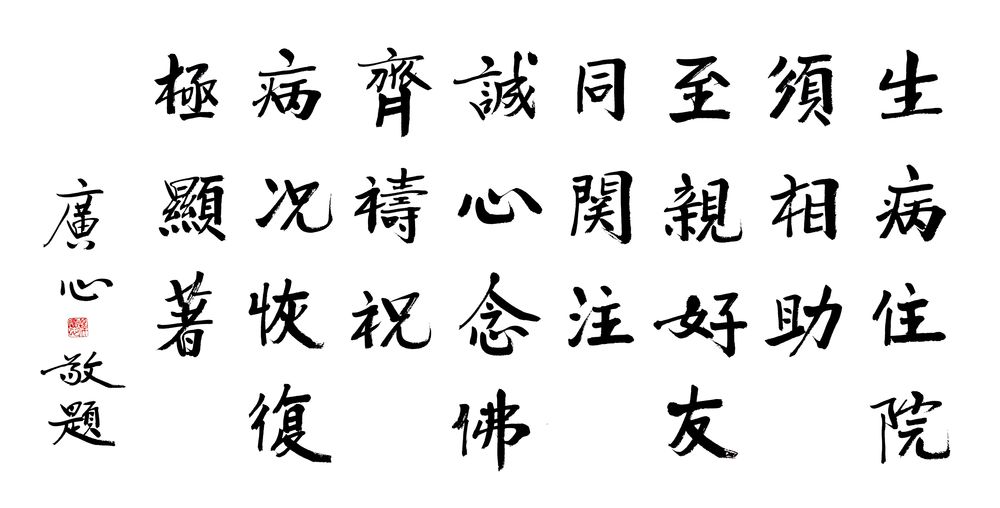 生病住院
須相助
至親好友
同関注
誠心念佛
齊禱祝
病況恢復
極顯著
廣心敬題